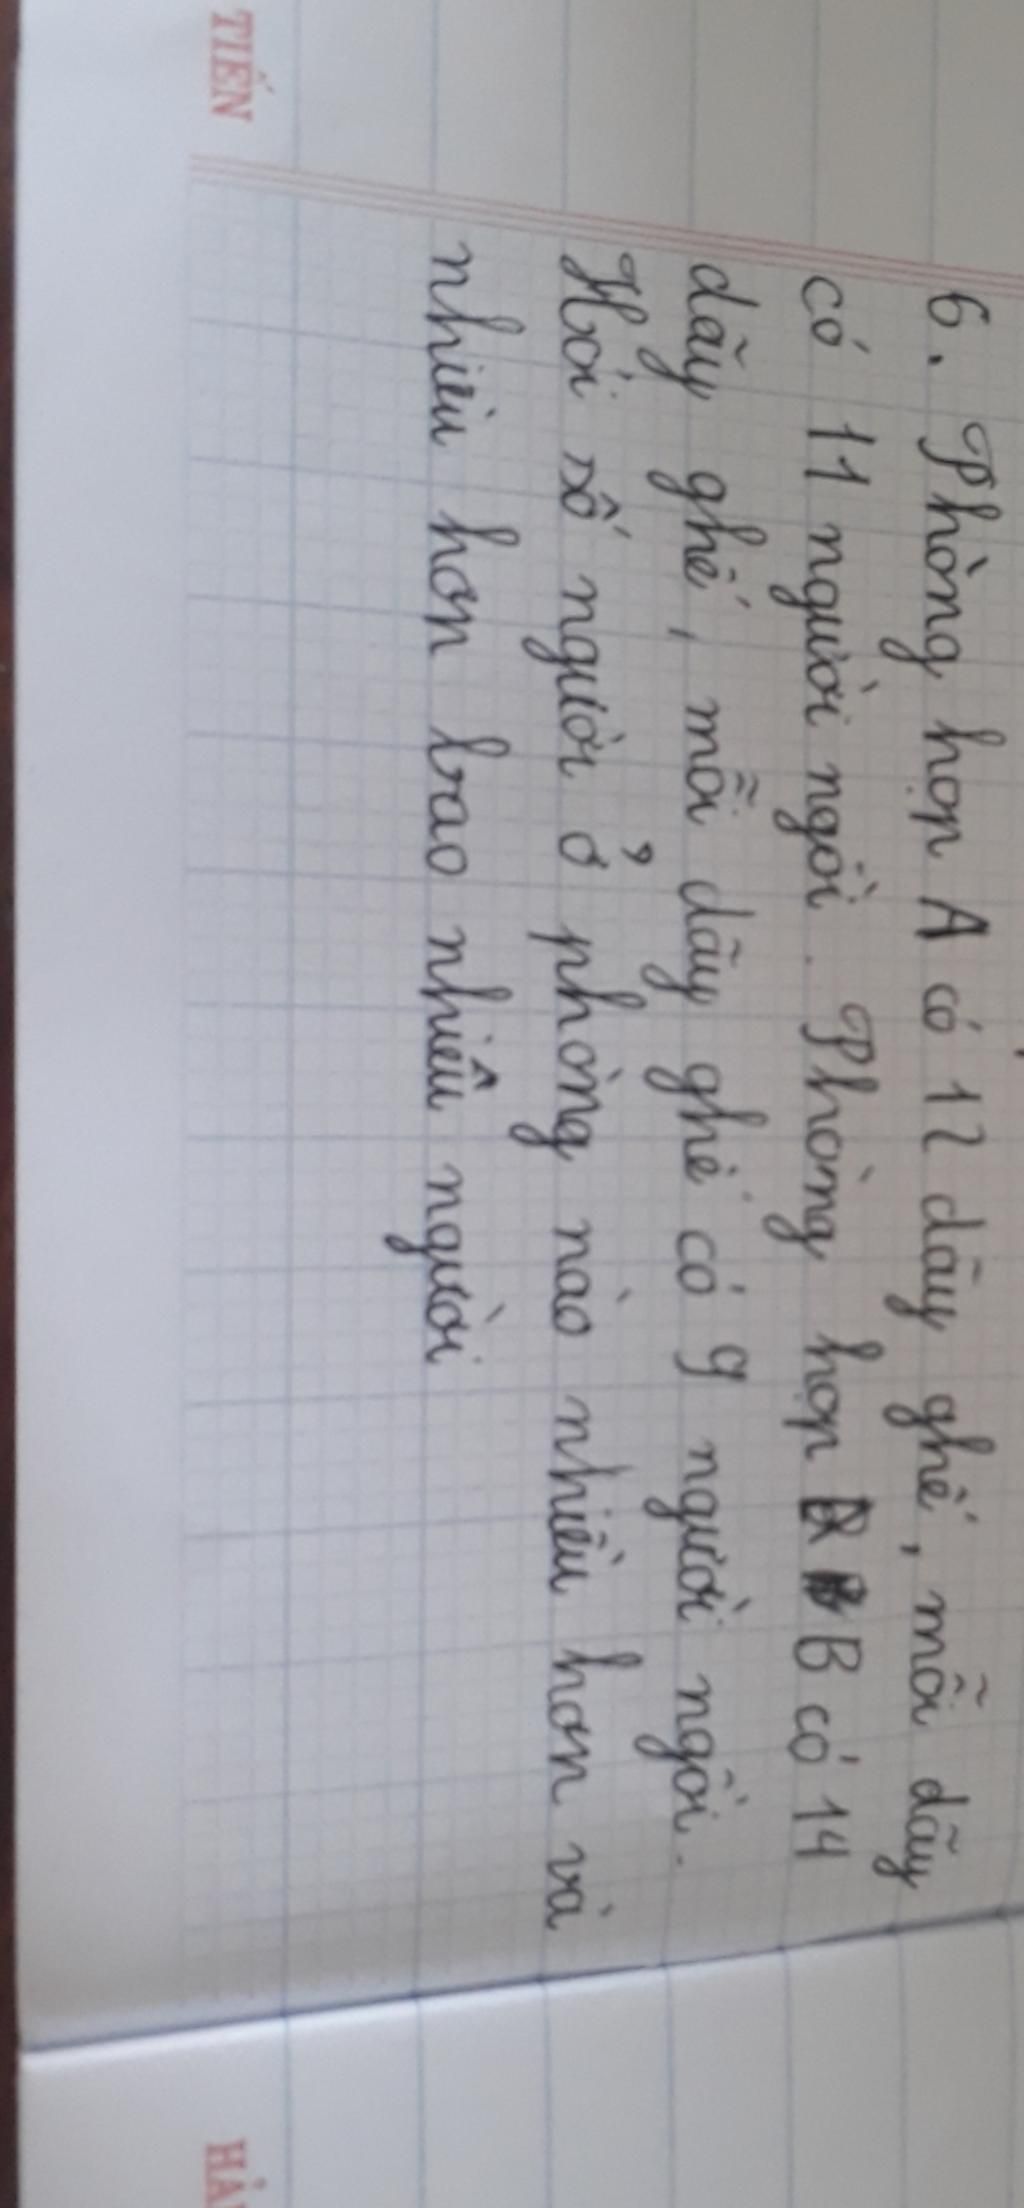 6. Phòng họp A có 12 dãy ghế, mỗi dãy
có 11 người ngồi. Phòng họp B có 14
dãy ghế, mỗi dãy ghế có 9 người ngồi.
Hỏi số người ở phòng nào nhiều hơn và
nhiều hơn bao nhiêu người
TIẾN